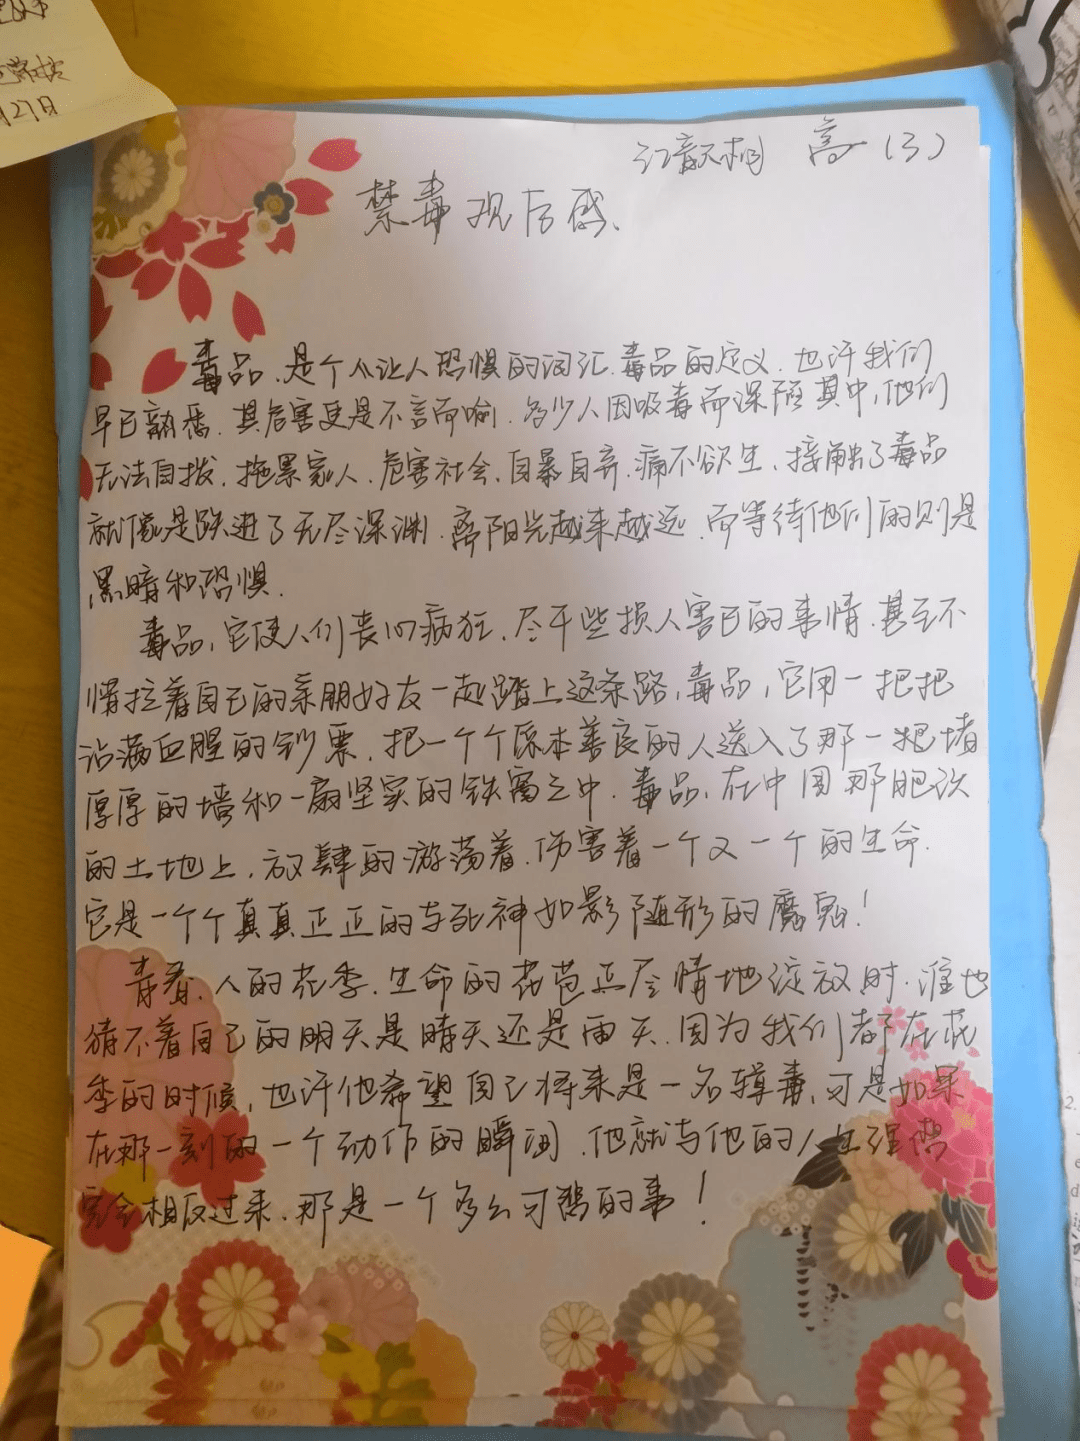 月27日
高一（3）
禁毒观后感.
毒品,是个让人恐惧的词汇.毒品的定义.也许我们
早已熟悉.其危害更是不言而喻.多少人因吸毒而深陷其中,他们
无法自拨.拖累家人.危害社会.自暴自弃.痛不欲生.接触了毒品
就像是跌进了无尽深渊.离阳光越来越远.而等待他们的则是
黑暗和恐惧.
毒品,它使人们丧心病狂.尽干些损人害己的事情.甚至不
惜拉着自己的亲朋好友一起踏上这条路,毒品,它用一把把
沾满血腥的钞票.把一个个原本善良的人送入了那一把堵
厚厚的墙和一扇坚实的铁窗之中.毒品,在中国那肥沃
的土地上,放肆的游荡着.伤害着一个又一个的生命.
它是一个个真真正正的与死神如影随形的魔鬼!
青春.人的花季.生命的花苞正尽情地绽放时.谁也
猜不着自己的明天是晴天还是雨天.因为我们都在花
季的时候,也许他希望自己将来是一名缉毒,可是如果
在那一刻的一个动作的瞬间.他就与他的人生理想
完全相反过来.那是一个多么可
的事!